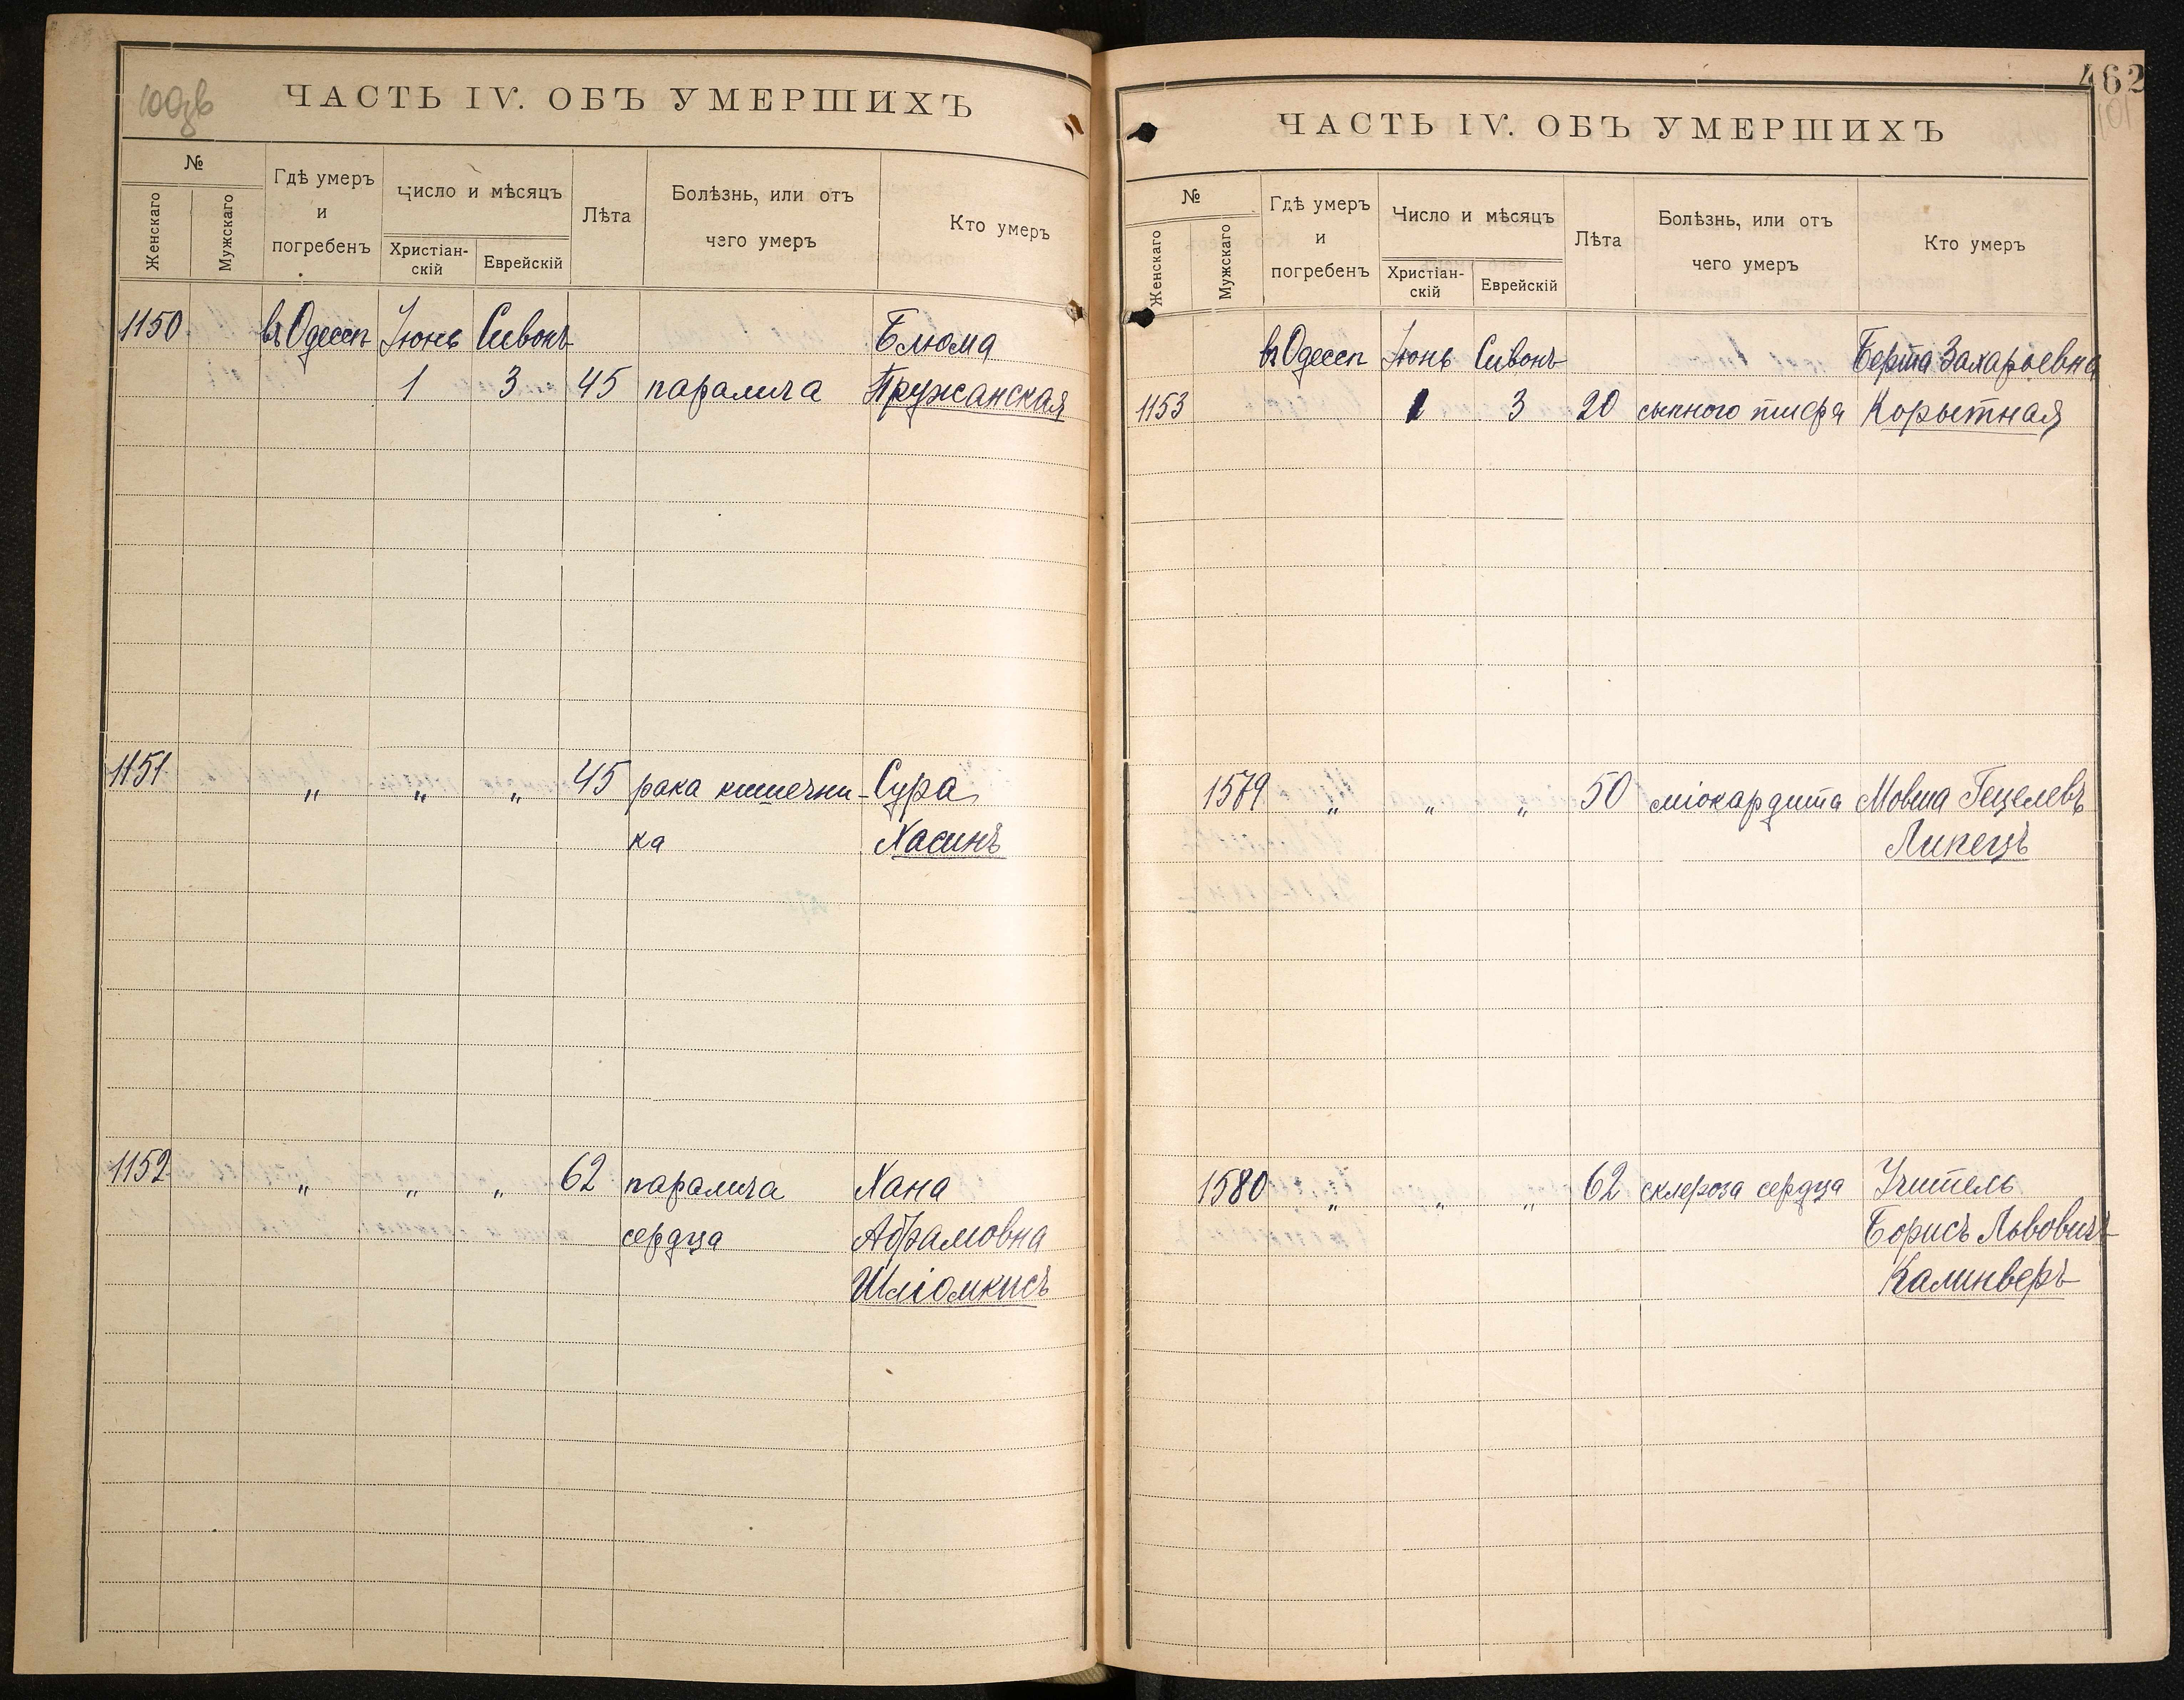 ЧАСТЬ IV. ОБЪ УМЕРШИХЪ
№
Женскаго
Мужскаго
Гдѣ умеръ
и
погребенъ
Число и мѣсяцъ
Христіан-
скій
Еврейскій
Лѣта
Болѣзнь, или отъ
чего умеръ
Кто умеръ
1150 въ Одессѣ Іюнь Сивонъ Блюма
1 3 45 паралича Пружанская
1151 " " " 45 рака кишечни- Сура
ка Хасинъ
1152 " " " 62 паралича Хана
сердца Абрамовна
Шліомкисъ
462
101
ЧАСТЬ IV. ОБЪ УМЕРШИХЪ
№
Женскаго
Мужскаго
Гдѣ умеръ
и
погребенъ
Число и мѣсяцъ
Христіан-
скій
Еврейскій
Лѣта
Болѣзнь, или отъ
чего умеръ
Кто умеръ
въ Одессѣ Іюнь Сивонъ Берта Захарьевна
1153 1 3 20 сыпного тифа Корытная
1579 " " " 50 міокардита Мовша Гецелевъ
Липецъ
1580 " " " 62 склероза сердца Учитель
Борисъ Львовичъ
Калинверъ